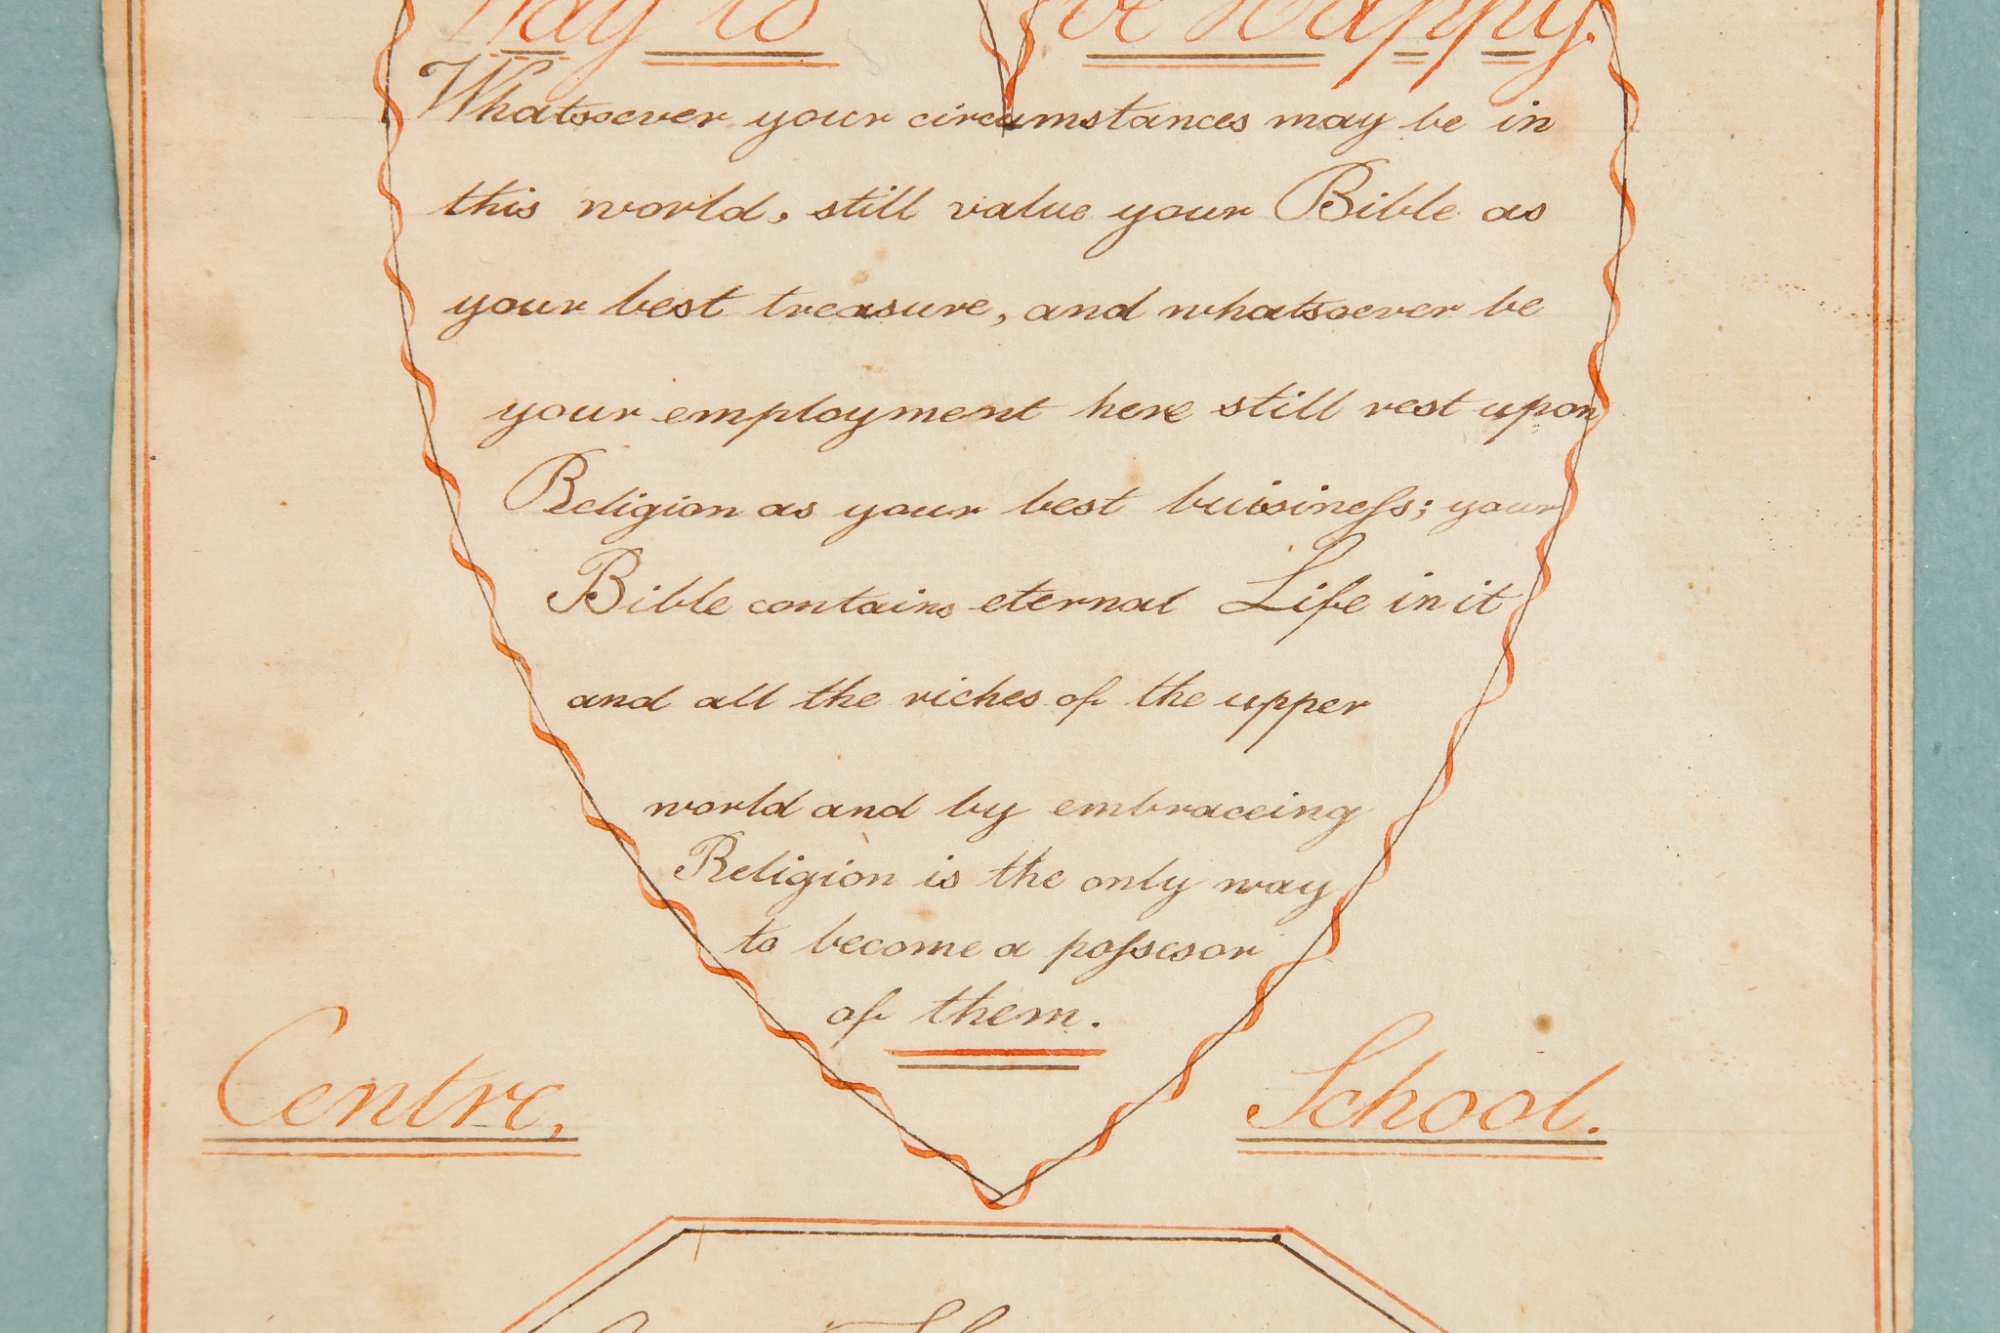 Way to be Happy.
Whatsoever your circumstances may be in
this world, still value your Bible as
your best treasure, and whatsoever be
your employment here still rest upon
Religion as your best buisineſs; your
Bible contains eternal Life in it
and all the riches of the upper
world and by embraceing
Religion is the only way
to become a poſsesor
of them.
Centre, School.